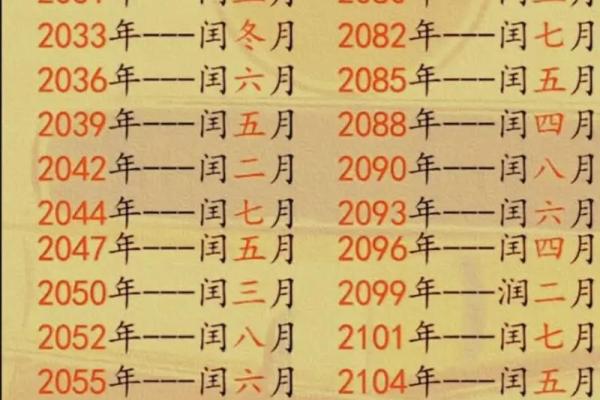 2033年---闰冬月 2082年---闰七月
2036年---闰六月 2085年---闰五月
2039年---闰五月 2088年---闰四月
2042年---闰二月 2090年---闰八月
2044年---闰七月 2093年---闰六月
2047年---闰五月 2096年---闰四月
2050年---闰三月 2099年---润二月
2052年---闰八月 2101年---闰七月
2055年---闰六月 2104年---闰五月